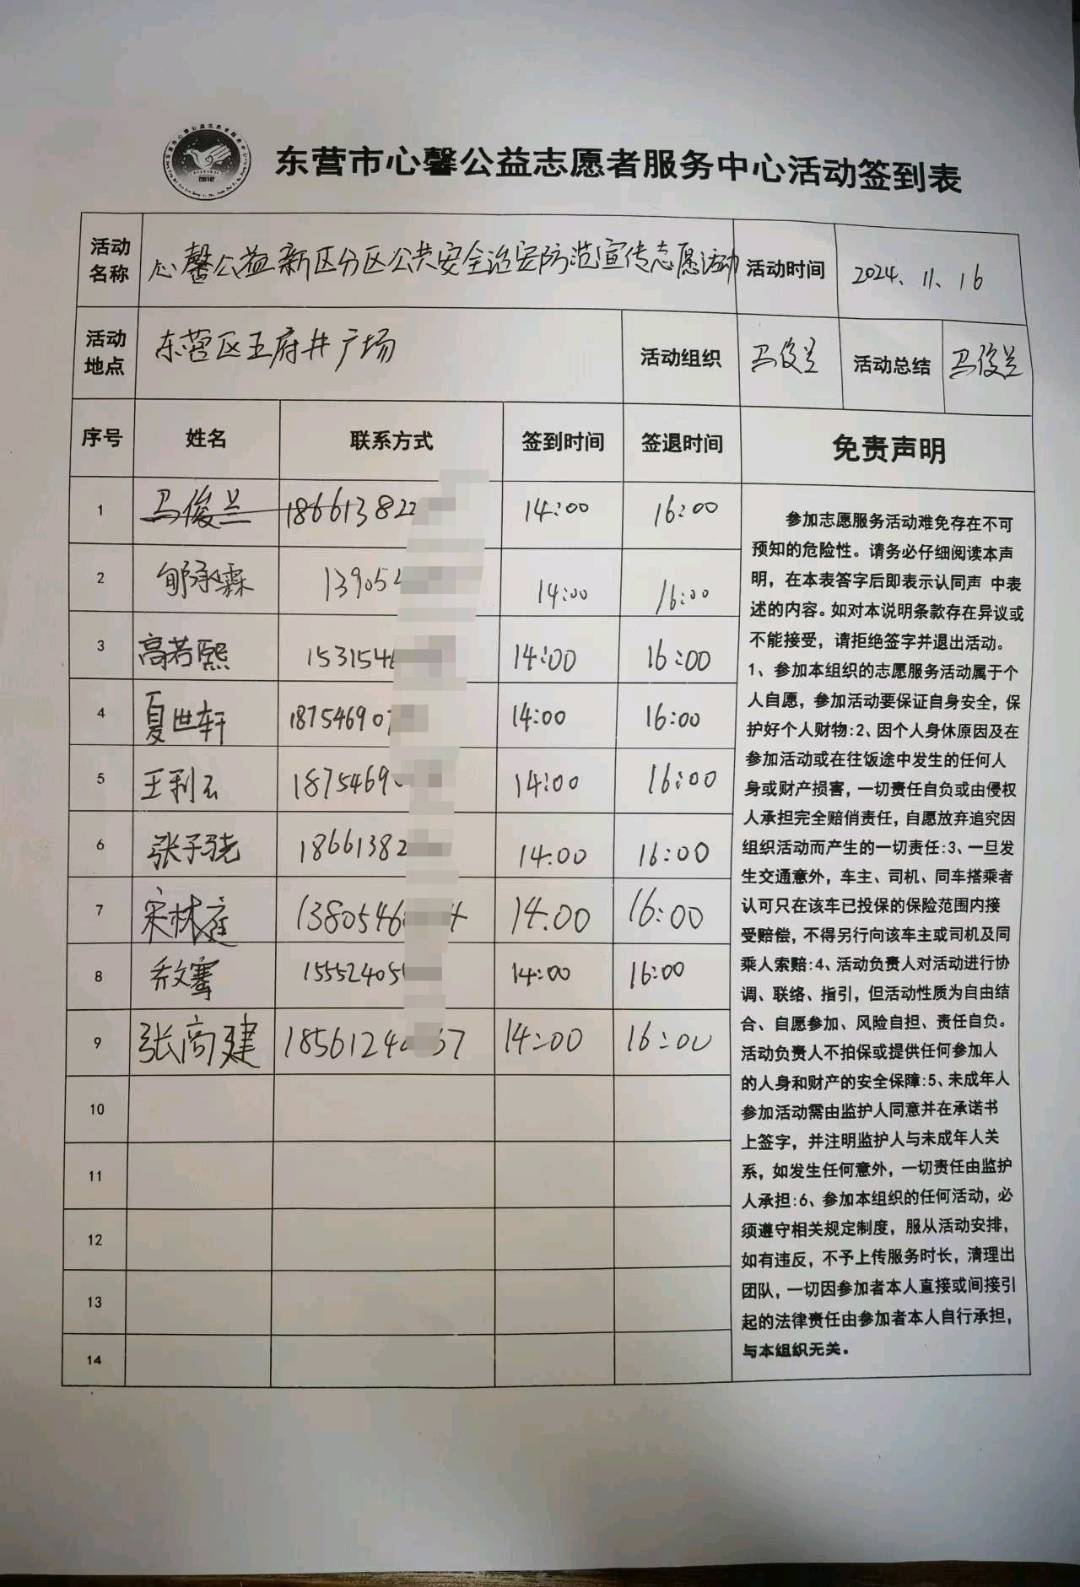 东营市心馨公益志愿者服务中心活动签到表
活动名称 心馨公益新区分区公共安全治安防范宣传志愿活动 活动时间 2024.11.16
活动地点 东营区王府井广场 活动组织 马俊兰 活动总结 马俊兰
序号 姓名 联系方式 签到时间 签退时间 免责声明
1 马俊兰 186613822 14:00 16:00
2 郇承霖 13905 14:00 16:00
3 高若熙 1531546 14:00 16:00
4 夏世轩 187546907 14:00 16:00
5 王利云 1875469 14:00 16:00
6 张子骁 18661382 14:00 16:00
7 宋林庭 1380546 4 14:00 16:00
8 15552405 14:00 16:00
9 张高建 1856124 67 14:00 16:00
10
11
12
13
14
参加志愿服务活动难免存在不可
预知的危险性。请务必仔细阅读本声
明，在本表答字后即表示认同声 中表
述的内容。如对本说明条款存在异议或
不能接受，请拒绝签字并退出活动。
1、参加本组织的志愿服务活动属于个
人自愿，参加活动要保证自身安全，保
护好个人财物:2、因个人身休原因及在
参加活动或在往饭途中发生的任何人
身或财产损害，一切责任自负或由侵权
人承担完全赔俏责任，自愿放弃追究因
组织活动而产生的一切责任:3、一旦发
生交通意外，车主、司机、同车搭乘者
认可只在该车已投保的保险范围内接
受赔偿，不得另行向该车主或司机及同
乘人索赔:4、活动负责人对活动进行协
调、联络、指引，但活动性质为自由结
合、自愿参加、风险自担、责任自负。
活动负责人不拍保或提供任何参加人
的人身和财产的安全保障:5、未成年人
参加活动需由监护人同意并在承诺书
上签字，并注明监护人与未成年人关
系，如发生任何意外，一切责任由监护
人承担:6、参加本组织的任何活动，必
须遵守相关规定制度，服从活动安排，
如有违反，不予上传服务时长，清理出
团队，一切因参加者本人直接或间接引
起的法律责任由参加者本人自行承担，
与本组织无关。